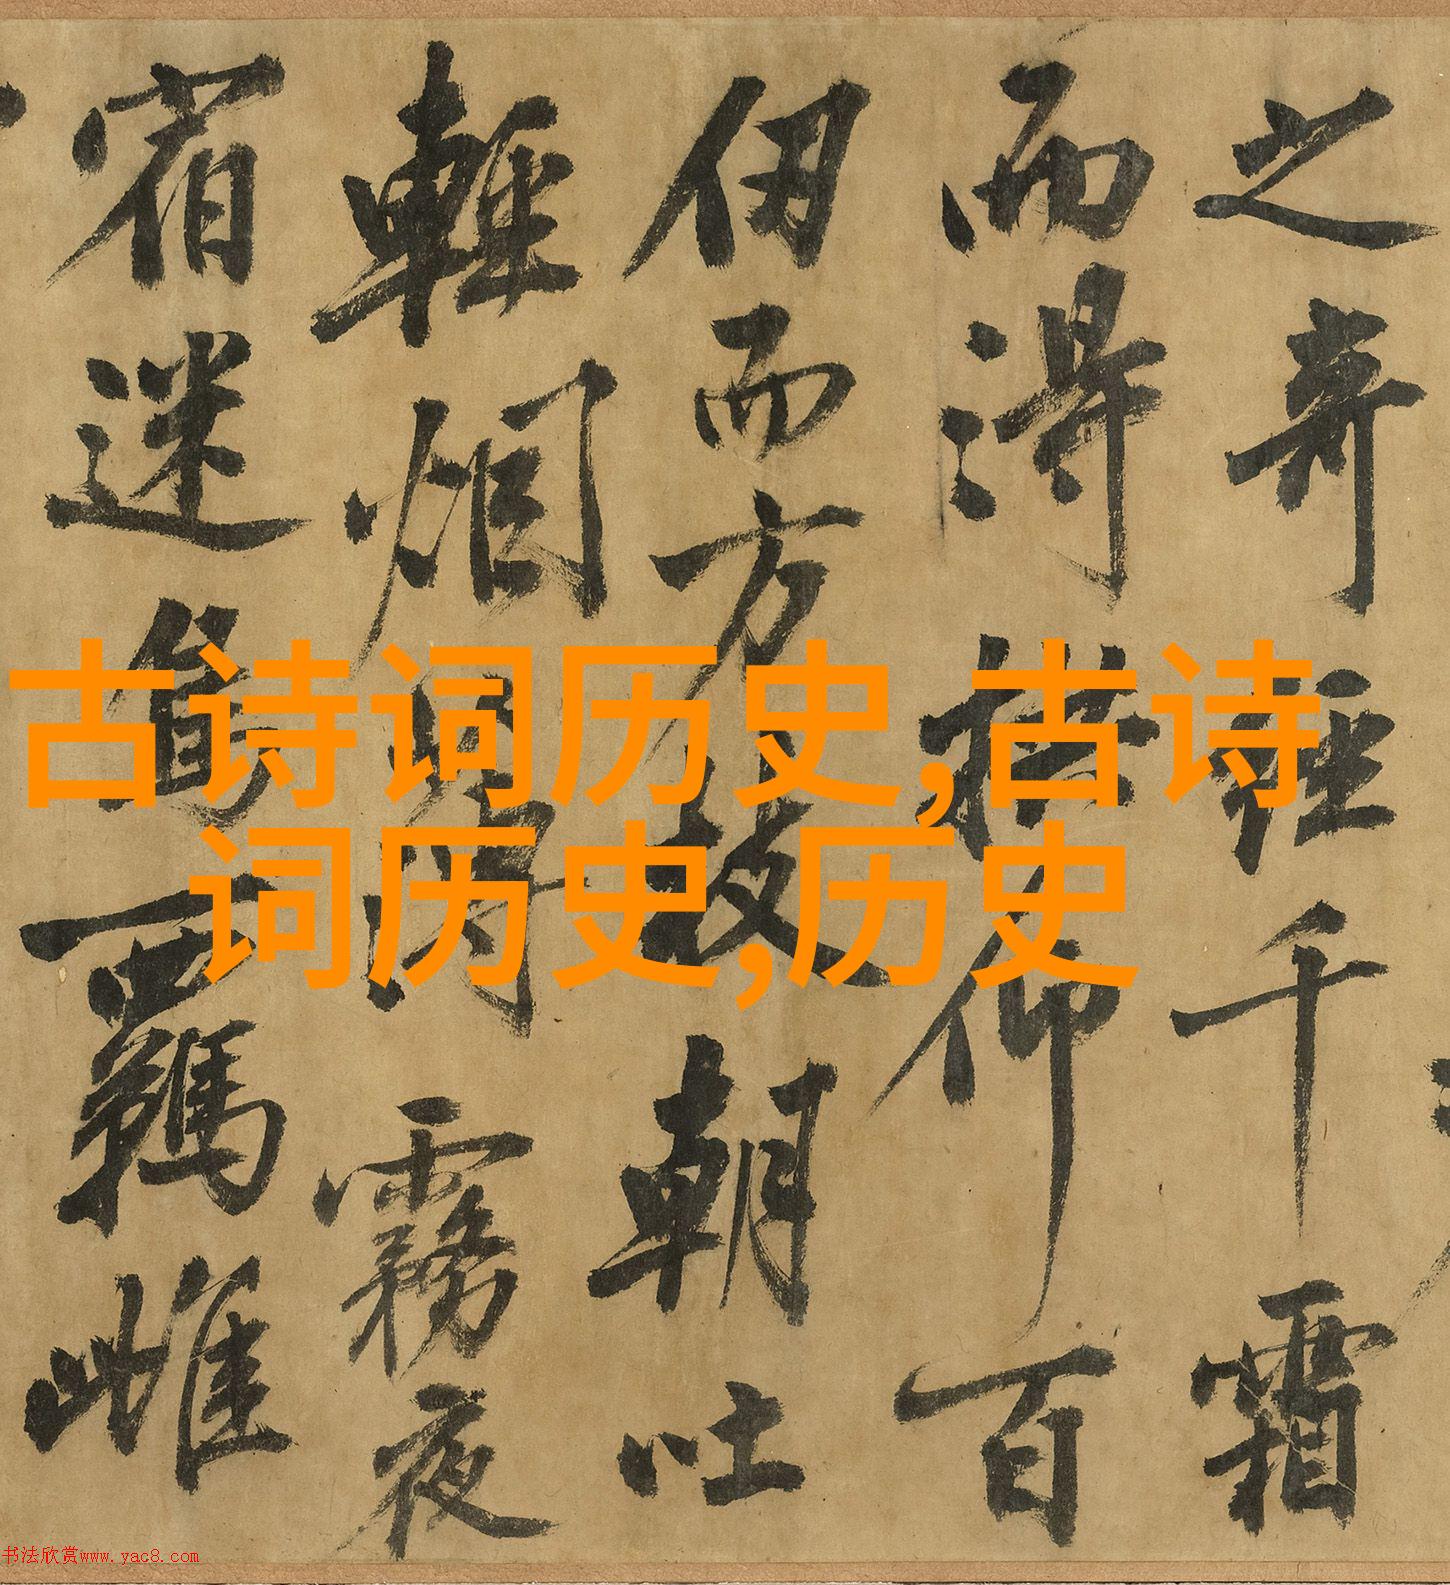 之奇經千霜
而得拱仰百
仞而方枝朝吐
輕烟薄霧夜
宿迷羈雌
古诗词历史,古诗
词历史,历史
书法欣赏www.yac8.com